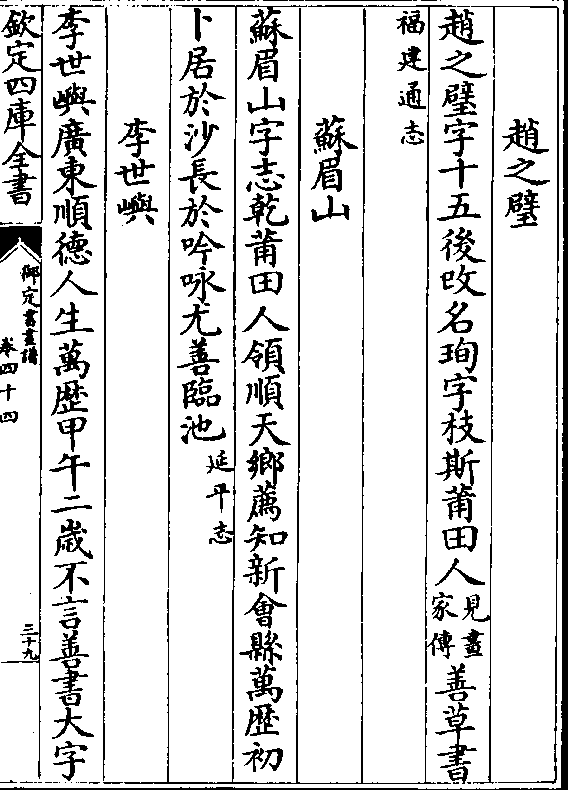 趙之璧
趙之璧字十五後改名珣字枝斯莆田人見畫家傳善草書
福建通志
蘇眉山
蘇眉山字志乾莆田人領順天鄉薦知新會縣萬歷初
卜居於沙長於吟咏尤善臨池延平志
李世嶼
李世嶼廣東順德人生萬歷甲午二歲不言善書大字
欽定四庫全書
御定書畫譜
卷四十四
三十九